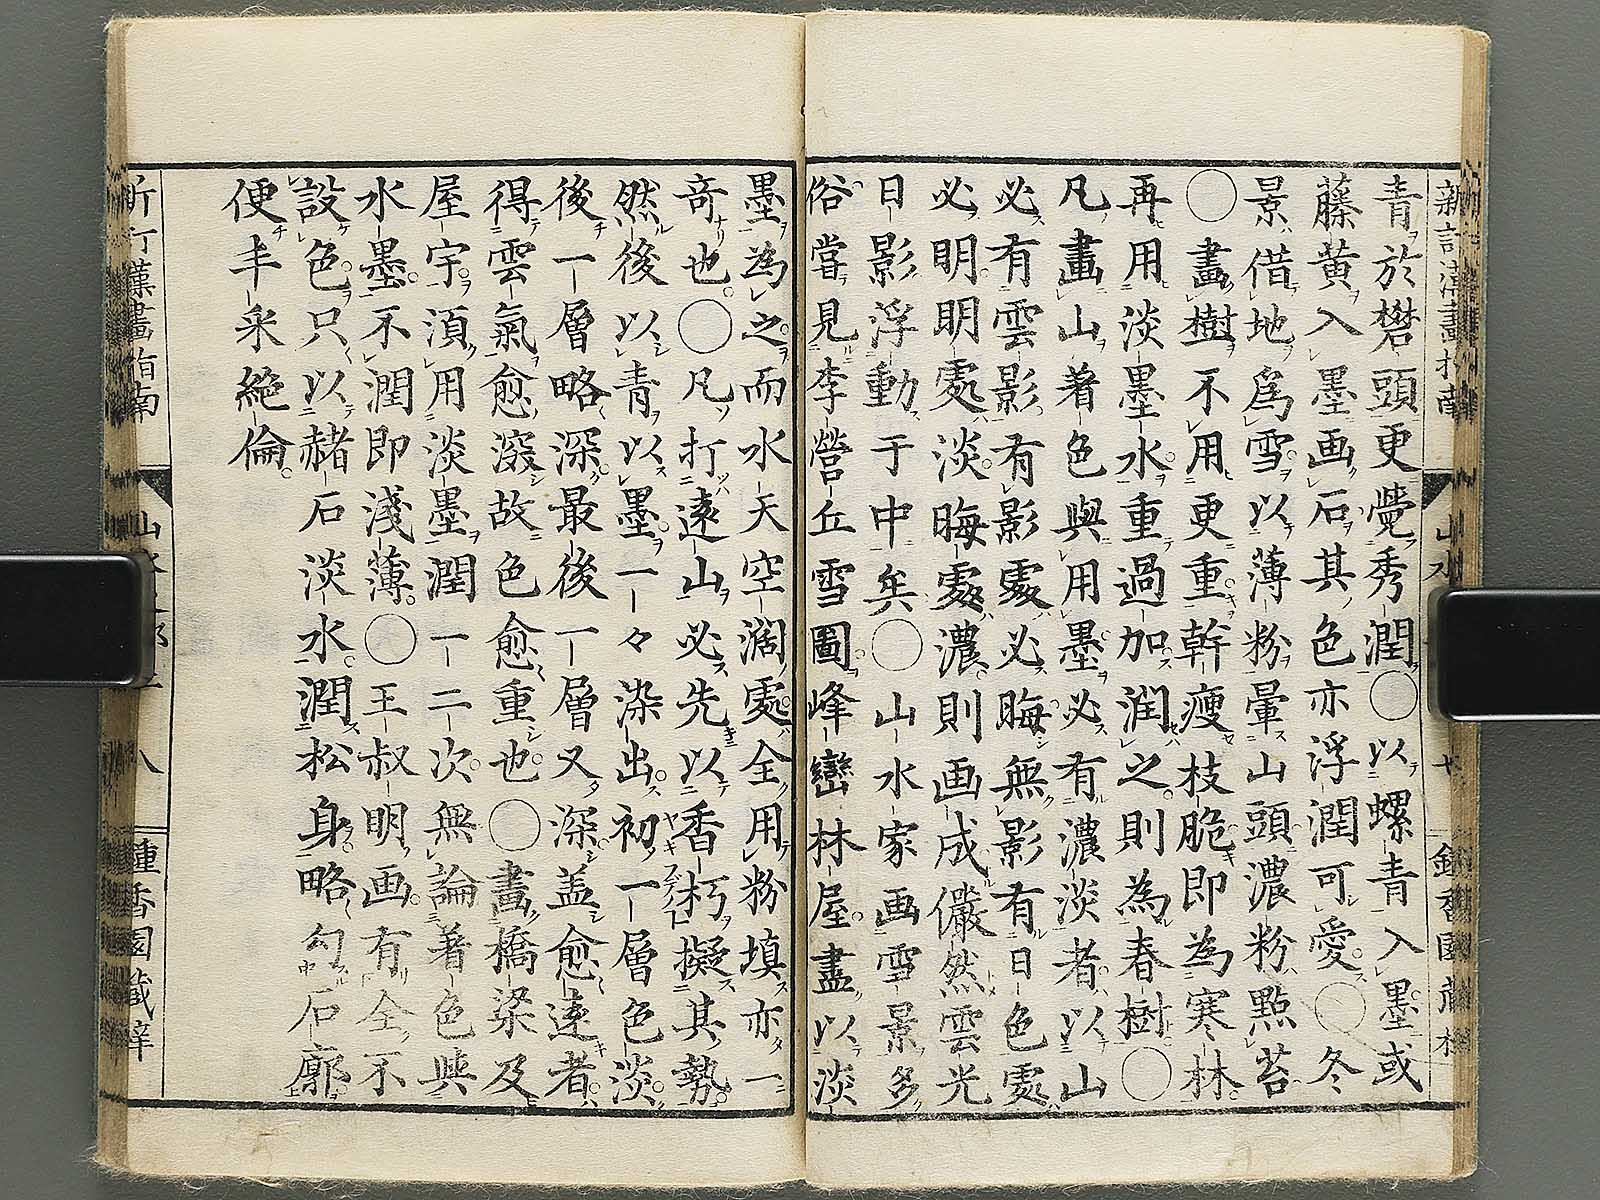 青於礬頭更覺秀潤○以螺青入墨或
藤黄入墨画石其色亦浮潤可愛○冬
景借地爲雪以薄粉暈山頭濃粉點苔
○畫樹不用更重重幹瘦枝脆即為寒林
再用淡墨水重過加潤之則為春樹○
凡畫山着色與用墨必有濃淡者以山
必有雲影有影處必晦無影有日色處
必明明處淡晦處濃則画成儼然雲光
日影浮動于中矣○山水家画雪景多
俗嘗見李營丘雪圖峰巒林屋盡以淡
墨為之而水天空濶處全用粉填亦一
竒也○凡打遠山必先以香朽擬其勢
然後以青以墨一一々染出初一層色淡
後一層略深最後一層又深盖愈遠者
得雲氣愈深故色愈重也○畫橋梁及
屋宇須用淡墨潤一二次無論着色與
水墨不潤即淺薄○王叔明画有全不
設色只以赭石淡水潤松身略勾石廓
便丰采絶倫
漢畫指南
八
種香園藏梓